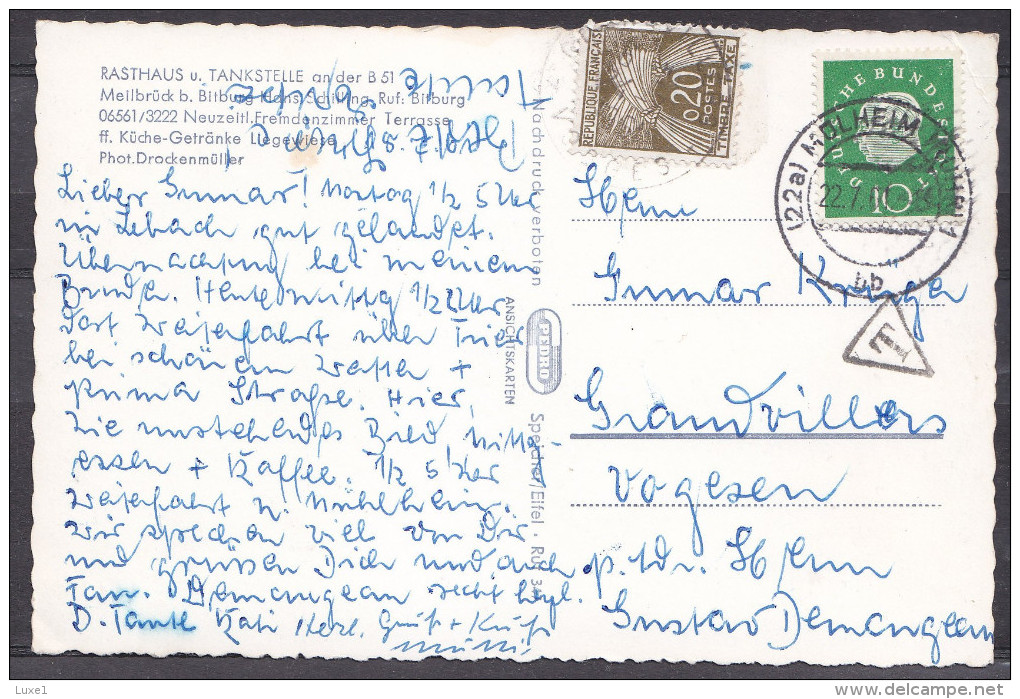 RASTHAUS u. TANKSTELLE an der B 51
Meilbrück b. Bitburg Hans Schilling Ruf: Bitburg
06561/3222 Neuzeitl. Fremdenzimmer Terrasse
ff. Küche-Getränke Liegewiese
Phot. Drockenmüller
Tante
Lieber Gunnar! Montag 1/2 5 Uhr
in Lebach gut gelandet.
Übernachtung bei meinem
Bruder. Heute mittag 1/2 2 Uhr
dort Weiterfahrt über Trier
bei schönem Wetter +
prima Straße. Hier,
Bild, Mittag-
essen + Kaffee. 1/2 5 Uhr
Weiterfahrt n. Mühlheim.
Wir sprechen viel von Dir
und grüssen Dich und auch
Fam. Demangean recht hzgl.
D. Tante Kati Herzl. Gruß + Kuß
Mutti
Nachdruck verboten
ANSICHTSKARTEN
PEDRO
Speicher/Eifel · Ruf 34
REPUBLIQUE FRANÇAISE
0,20
POSTES
TIMBRE TAXE
DEUTSCHE BUNDESPOST
10
(22a) MÜLHEIM (RUHR)
22.7.
bb
T
Herrn
Gunnar
Grandvillers
Vogesen
p. Adr. Herrn
Gustav Demangean
Luxe1
www.delcampe.net